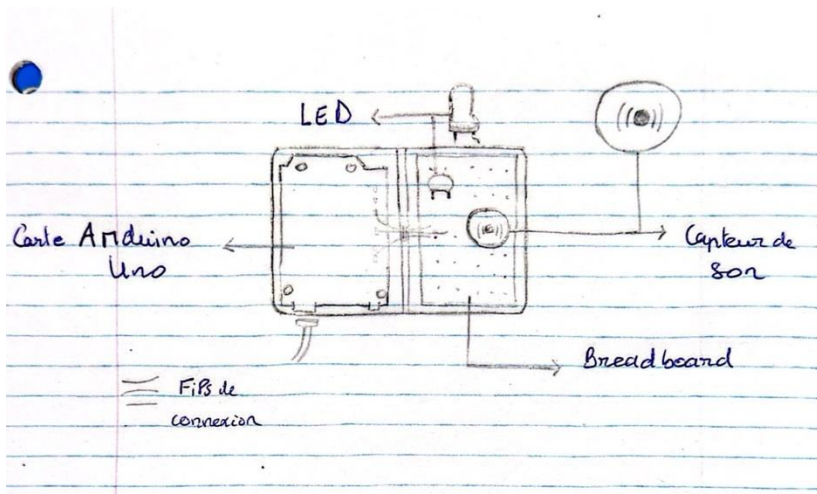 LED
Carte Arduino
Uno
Capteur de
son
Breadboard
Fils de
connexion